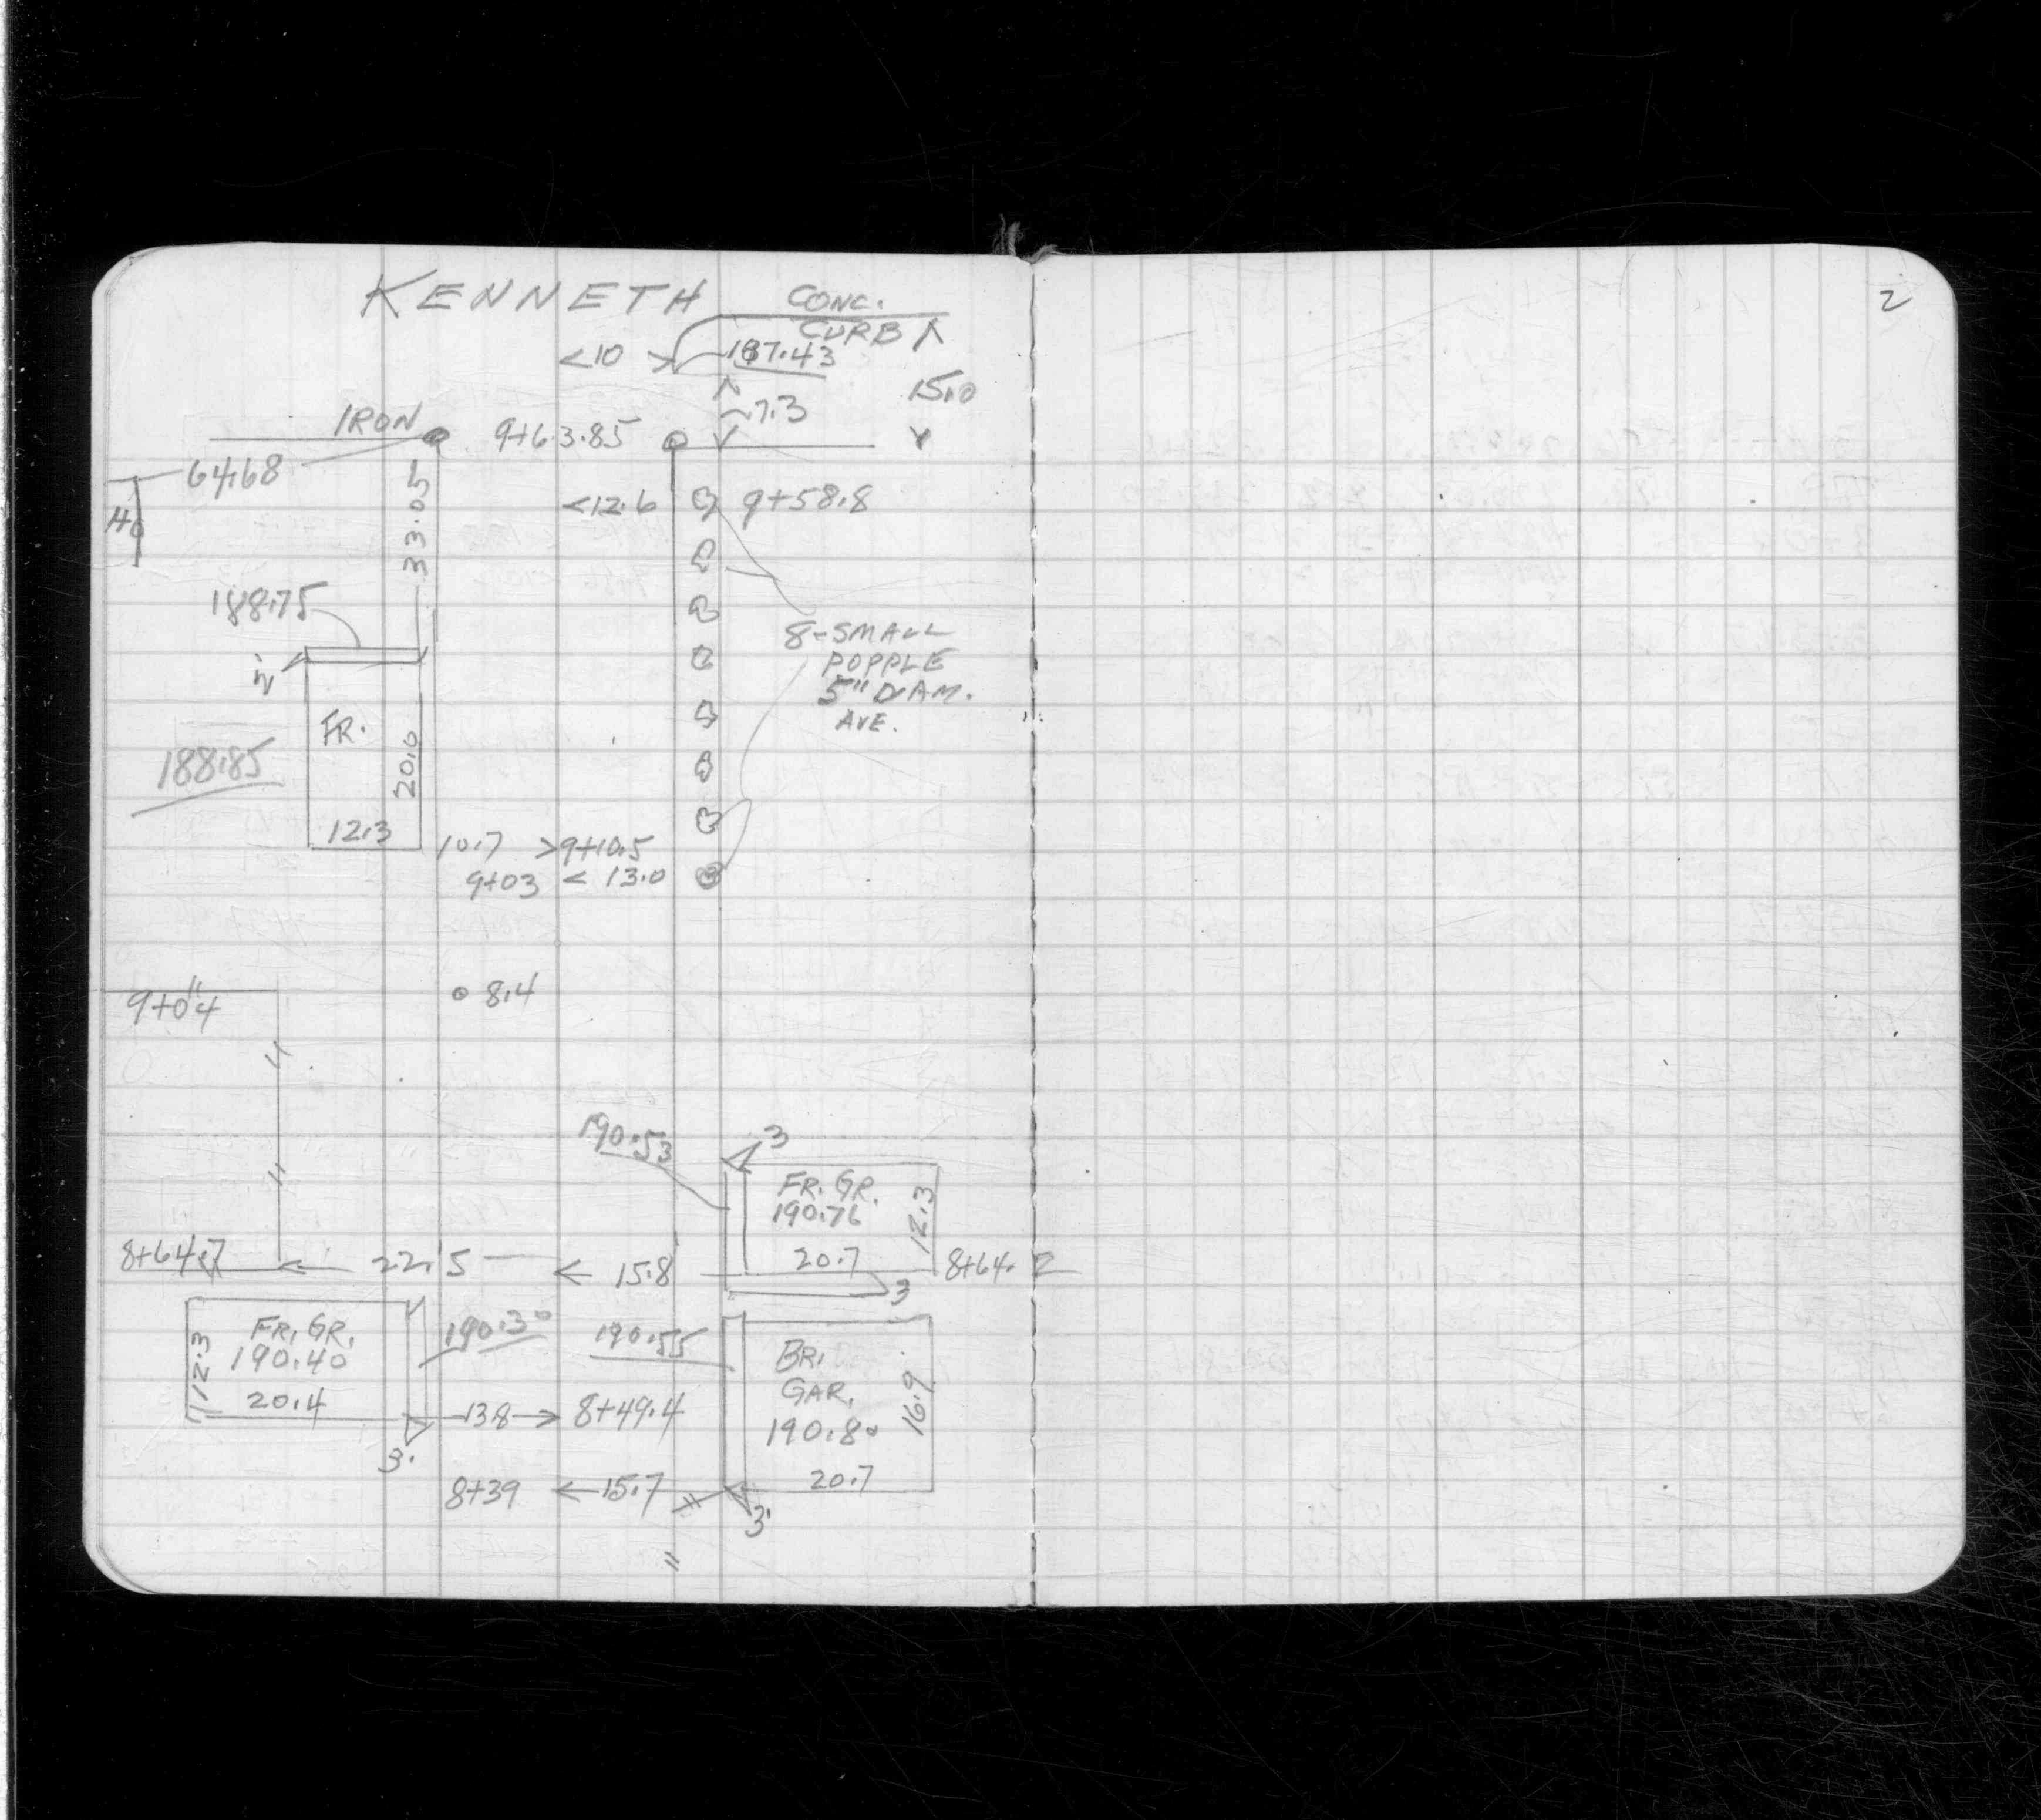 KENNETH
CONC.
CURB
<10 >
187.43
7.3
15.0
IRON
9+63.85
64.68
33.05
Ho
<12.6
9+58.8
188.75
8-SMALL
POPPLE
5" DIAM.
AVE.
FR.
20.0
188.85
12.3
10.7 >9+10.5
9+03 < 13.0
9+04
8.4
190.53
3
FR. GR.
190.76
12.3
20.7
8+64.7
22.5
< 15.8
8+64.2
3
FR. GR.
190.40
12.3
20.4
190.30
190.55
BR.
GAR.
190.80
16.9
20.7
13.8 → 8+49.4
3'
8+39 ← 15.7
3'
2